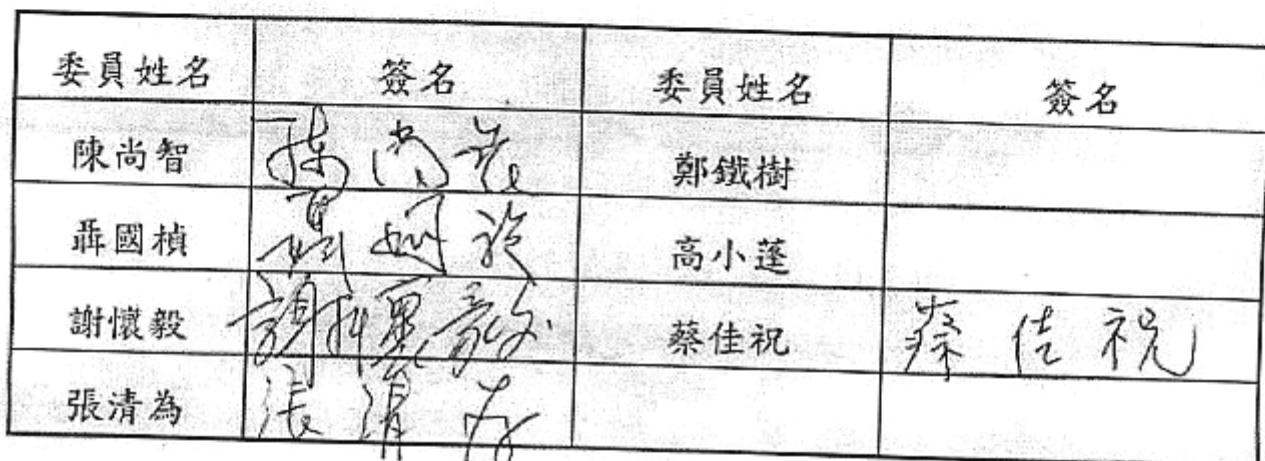 委員姓名 簽名 委員姓名 簽名
陳尚智 陳尚智 鄭鐵樹
聶國楨 高小蓬
謝懷毅 謝懷毅 蔡佳祝 蔡佳祝
張清為 張清為